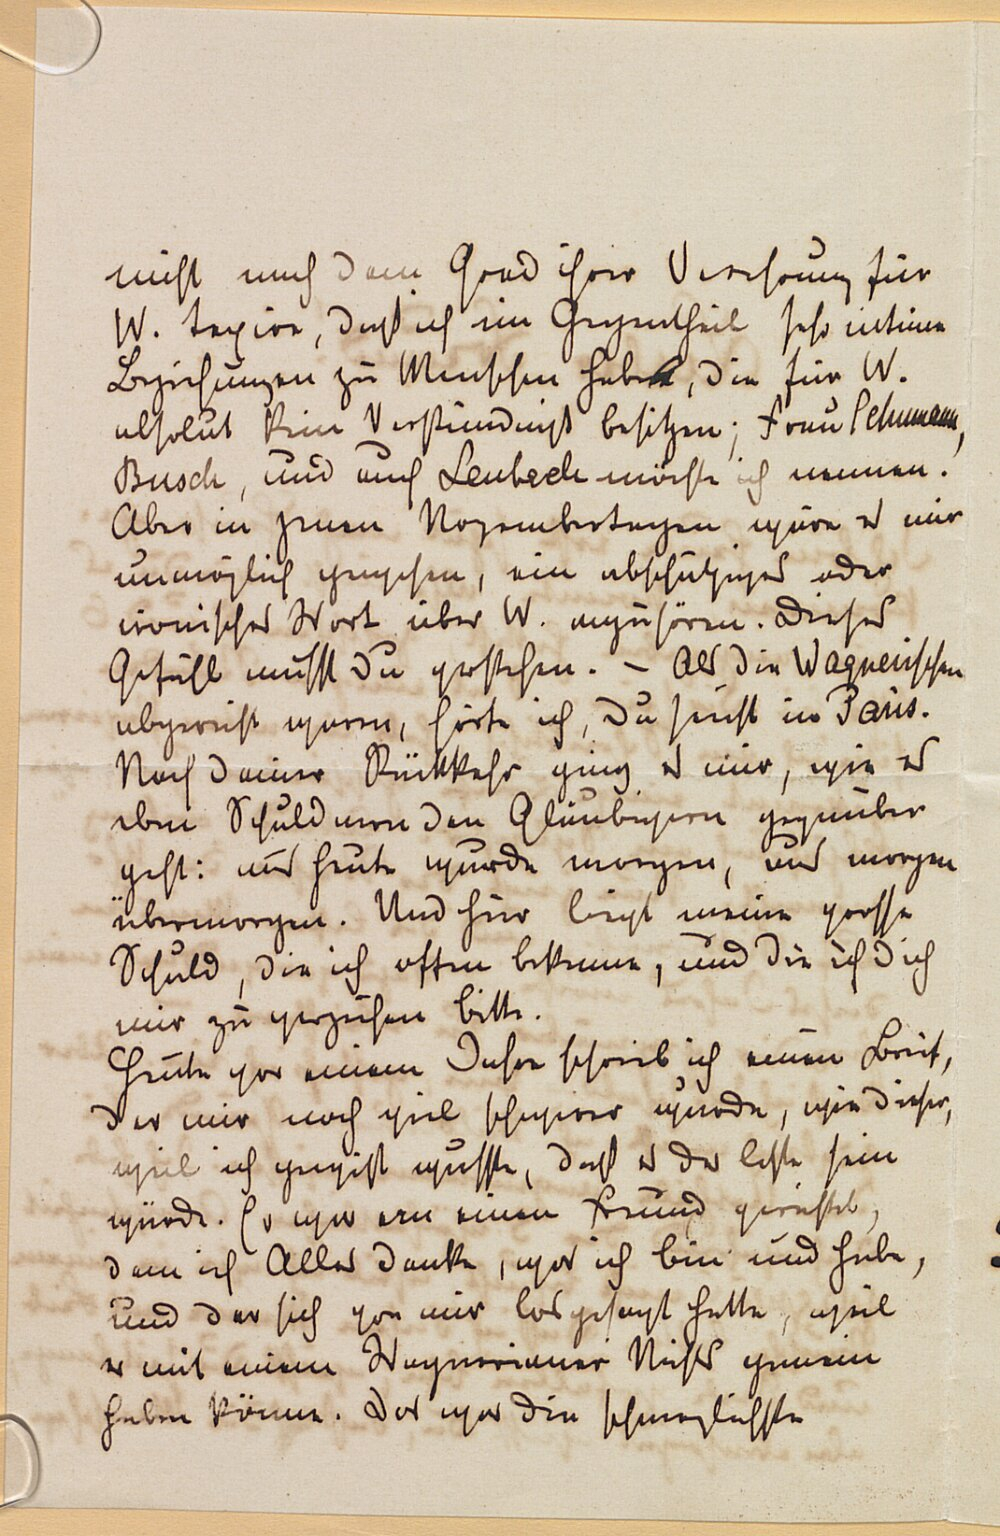 nicht nach dem Grad ihrer Verehrung für
W. taxire, daß ich im Gegentheil sehr intime
Beziehungen zu Menschen habe, die für W.
absolut kein Verständniß besitzen; Frau Schumann,
Busch, und auch Lenbach möchte ich nennen.
Aber in jenen Novembertagen wäre es mir
unmöglich gewesen, ein abschätziges oder
ironisches Wort über W. anzuhören. Dieses
Gefühl mußt Du verstehen. – Als die Wagnerischen
abgereist waren, hörte ich, Du seiest in Paris.
Nach Deiner Rückkehr ging es mir, wie es
eben Schuldnern den Gläubigern gegenüber
geht: aus heute wurde morgen, aus morgen
übermorgen. Und hier liegt meine grosse
Schuld, die ich offen bekenne, und die ich Dich
mir zu verzeihen bitte.
Heute vor einem Jahre schrieb ich einen Brief,
der mir noch viel schwerer wurde, wie dieser,
weil ich gewiß wusste, daß es der letzte sein
würde. Es war an einen Freund gerichtet,
dem ich Alles danke, was ich bin und habe,
und der sich von mir losgesagt hatte, weil
er mit einem Wagnerianer Nichts gemein
haben könne. Das war die schmerzlichste